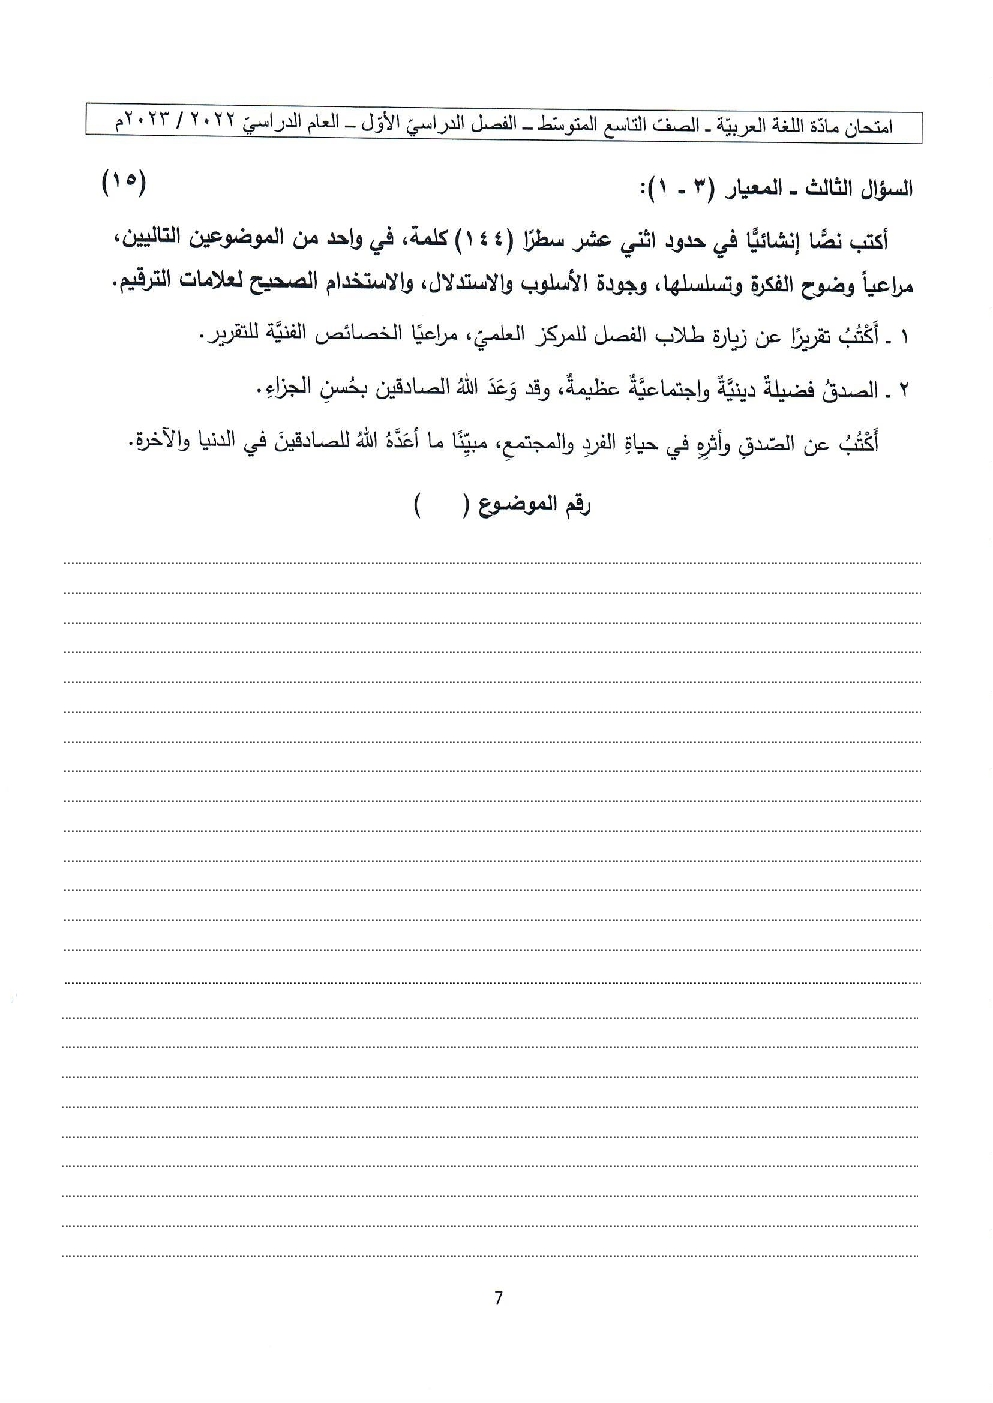 امتحان مادّة اللغة العربيّة ـ الصفّ التاسع المتوسّط ـ الفصل الدراسيّ الأوّل ـ العام الدراسيّ ٢٠٢٢ / ٢٠٢٣م
السؤال الثالث ـ المعيار (٣ - ١): (١٥)
أكتب نصًّا إنشائيًّا في حدود اثني عشر سطرًا (١٤٤) كلمة، في واحد من الموضوعين التاليين،
مراعياً وضوح الفكرة وتسلسلها، وجودة الأسلوب والاستدلال، والاستخدام الصحيح لعلامات الترقيم.
١ ـ أَكْتُبُ تقريرًا عن زيارة طلاب الفصل للمركز العلميّ، مراعيًا الخصائص الفنيَّة للتقرير.
٢ ـ الصدقُ فضيلةٌ دينيَّةٌ واجتماعيَّةٌ عظيمةٌ، وقد وَعَدَ اللهُ الصادقين بحُسنِ الجزاءِ.
أَكْتُبُ عن الصّدقِ وأثرِهِ في حياةِ الفردِ والمجتمعِ، مبيّنًا ما أعَدَّهُ اللهُ للصادقينَ في الدنيا والآخرة.
رقم الموضوع ( )
7